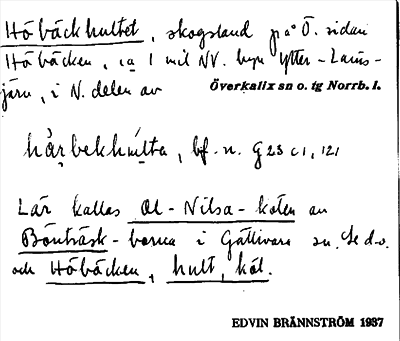 Höbäckhultet, skogsland på Ö. sidan
Höbäcken, ca 1 mil NV. byn Ytter-Lans-
järv, i N. delen av Överkalix sn o. tg Norrb. l.
hå̀ṛbekhúlta, bf. n. G23 c1, 121
Lär kallas Ol-Nilsa-koten av
Bönträsk-borna i Gällivare sn. Se d.o.
och Höbäcken, hult, kål.
EDVIN BRÄNNSTRÖM 1937